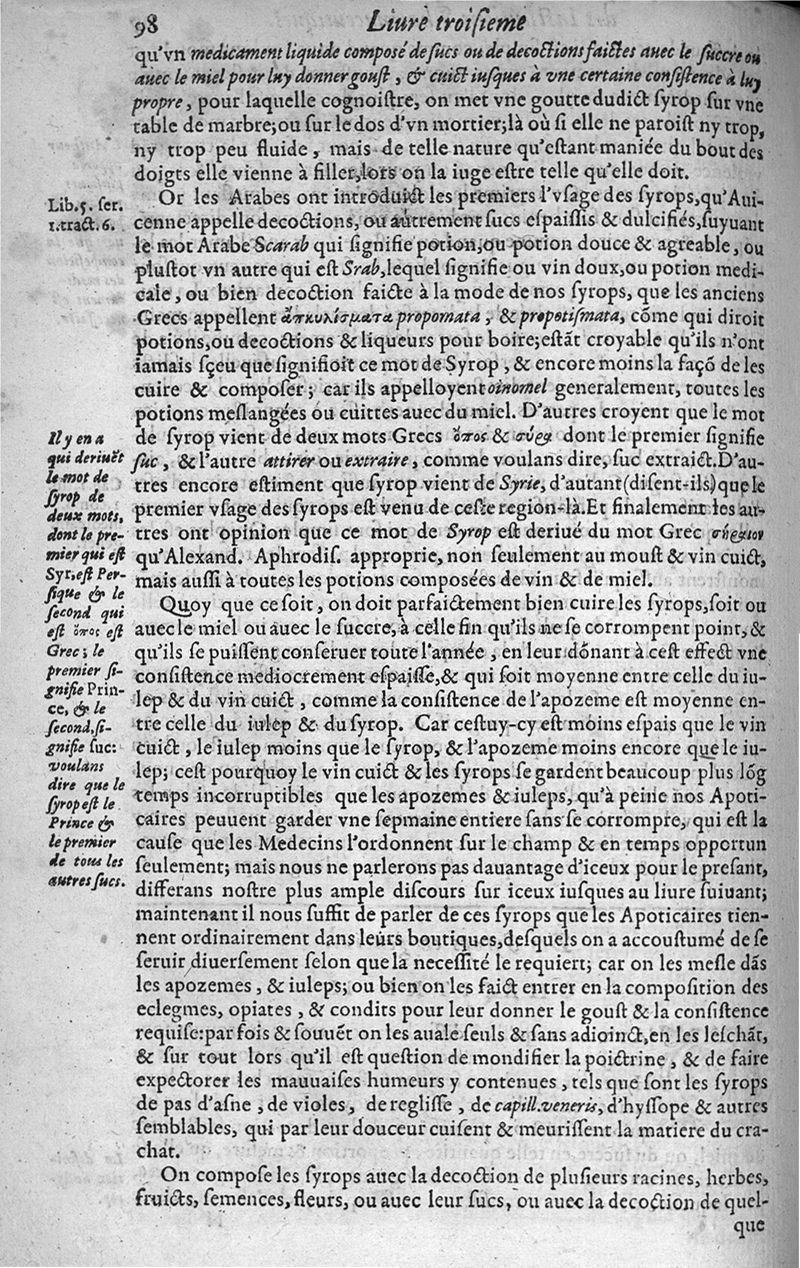 98 Liure troiſieme
qu'vn medicament liquide compoſé de ſucs ou de decoctions faictes auec le ſuccre ou
auec le miel pour luy donner gouſt, & cuict iuſques à vne certaine conſiſtence à luy
propre, pour laquelle cognoiſtre, on met vne goutte dudict ſyrop ſur vne
table de marbre; ou ſur le dos d'vn mortier; là où ſi elle ne paroiſt ny trop,
ny trop peu fluide, mais de telle nature qu'eſtant maniée du bout des
doigts elle vienne à filler, lors on la iuge eſtre telle qu'elle doit.
Or les Arabes ont introduict les premiers l'vſage des ſyrops, qu'Aui-
cenne appelle decoctions, ou autrement ſucs eſpaiſſis & dulcifiés, ſuyuant
le mot Arabe Scarab qui ſignifie potion, ou potion douce & agreable, ou
pluſtot vn autre qui eſt Srab, lequel ſignifie ou vin doux, ou potion medi-
cale, ou bien decoction faicte à la mode de nos ſyrops, que les anciens
Grecs appellent propomata, & propotiſmata, cõme qui diroit
potions, ou decoctions & liqueurs pour boire; eſtãt croyable qu'ils n'ont
iamais ſçeu que ſignifioit ce mot de Syrop, & encore moins la façõ de les
cuire & compoſer; car ils appelloyent oinomel generalement, toutes les
potions meſlangées ou cuittes auec du miel. D'autres croyent que le mot
de ſyrop vient de deux mots Grecs ὀπος & σύρω dont le premier ſignifie
ſuc, & l'autre attirer ou extraire, comme voulans dire, ſuc extraict. D'au-
tres encore eſtiment que ſyrop vient de Syrie, d'autant (diſent-ils) que le
premier vſage des ſyrops eſt venu de ceſte region-là. Et finalement les au-
tres ont opinion que ce mot de Syrop eſt deriué du mot Grec
qu'Alexand. Aphrodiſ. approprie, non ſeulement au mouſt & vin cuict,
mais auſſi à toutes les potions compoſées de vin & de miel.
Quoy que ce ſoit, on doit parfaictement bien cuire les ſyrops, ſoit ou
auec le miel ou auec le ſuccre, à celle fin qu'ils ne ſe corrompent point, &
qu'ils ſe puiſſent conſeruer toute l'année, en leur dõnant à ceſt effect vne
conſiſtence mediocrement eſpaiſſe, & qui ſoit moyenne entre celle du iu-
lep & du vin cuict, comme la conſiſtence de l'apozeme eſt moyenne en-
tre celle du iulep & du ſyrop. Car ceſtuy-cy eſt moins eſpais que le vin
cuict, le iulep moins que le ſyrop, & l'apozeme moins encore que le iu-
lep; ceſt pourquoy le vin cuict & les ſyrops ſe gardent beaucoup plus lõg
temps incorruptibles que les apozemes & iuleps, qu'à peine nos Apoti-
caires peuuent garder vne ſepmaine entiere ſans ſe corrompre, qui eſt la
cauſe que les Medecins l'ordonnent ſur le champ & en temps opportun
ſeulement; mais nous ne parlerons pas dauantage d'iceux pour le preſant,
differans noſtre plus ample diſcours ſur iceux iuſques au liure ſuiuant;
maintenant il nous ſuffit de parler de ces ſyrops que les Apoticaires tien-
nent ordinairement dans leurs boutiques, deſquels on a accouſtumé de ſe
ſeruir diuerſement ſelon que la neceſſité le requiert; car on les meſle dãs
les apozemes, & iuleps; ou bien on les faict entrer en la compoſition des
eclegmes, opiates, & condits pour leur donner le gouſt & la conſiſtence
requiſe: par fois & ſouuẽt on les auale ſeuls & ſans adioinct, en les leſchãt,
& ſur tout lors qu'il eſt queſtion de mondifier la poictrine, & de faire
expectorer les mauuaiſes humeurs y contenues, tels que ſont les ſyrops
de pas d'aſne, de violes, de regliſſe, de capill. veneris, d'hyſſope & autres
ſemblables, qui par leur douceur cuiſent & meuriſſent la matiere du cra-
chat.
On compoſe les ſyrops auec la decoction de pluſieurs racines, herbes,
fruicts, ſemences, fleurs, ou auec leur ſucs, ou auec la decoction de quel-
que
Lib. 5. ſer.
1. tract. 6.
Il y en a
qui deriuẽt
le mot de
ſyrop de
deux mots,
dont le pre-
mier qui eſt
Syr, eſt Per-
ſique & le
ſecond qui
eſt ὀπος eſt
Grec; le
premier ſi-
gnifie Prin-
ce, & le
ſecond, ſi-
gnifie ſuc:
voulans
dire que le
ſyrop eſt le
Prince &
le premier
de tous les
autres ſucs.